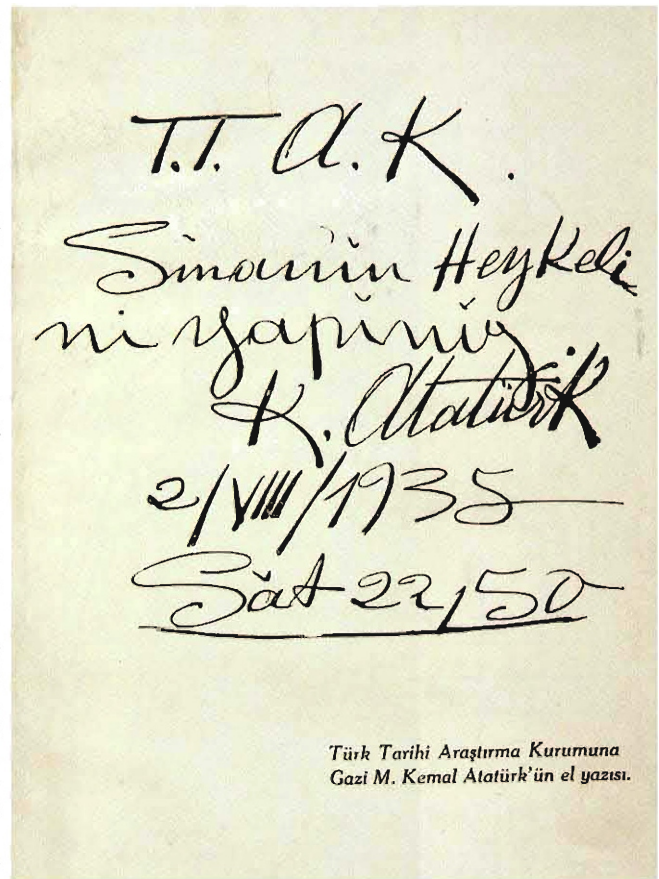 T.T. A. K.
Sinan'ın Heykeli
ni yapınız.
K. Atatürk
2/VIII/1935
Sāat 22,50
Türk Tarihi Araştırma Kurumuna
Gazi M. Kemal Atatürk'ün el yazısı.